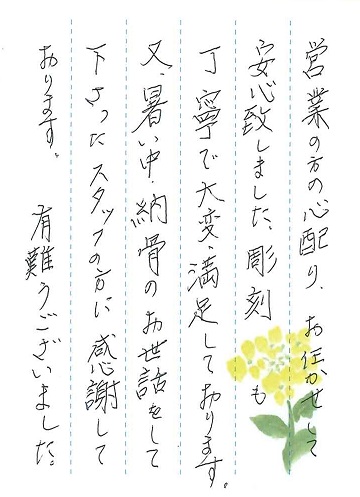 営業の方の心配り、お任せして
安心致しました、彫刻も
丁寧で大変、満足しております。
又、暑い中、納骨のお世話をして
下さったスタッフの方に感謝して
おります。 有難うございました。